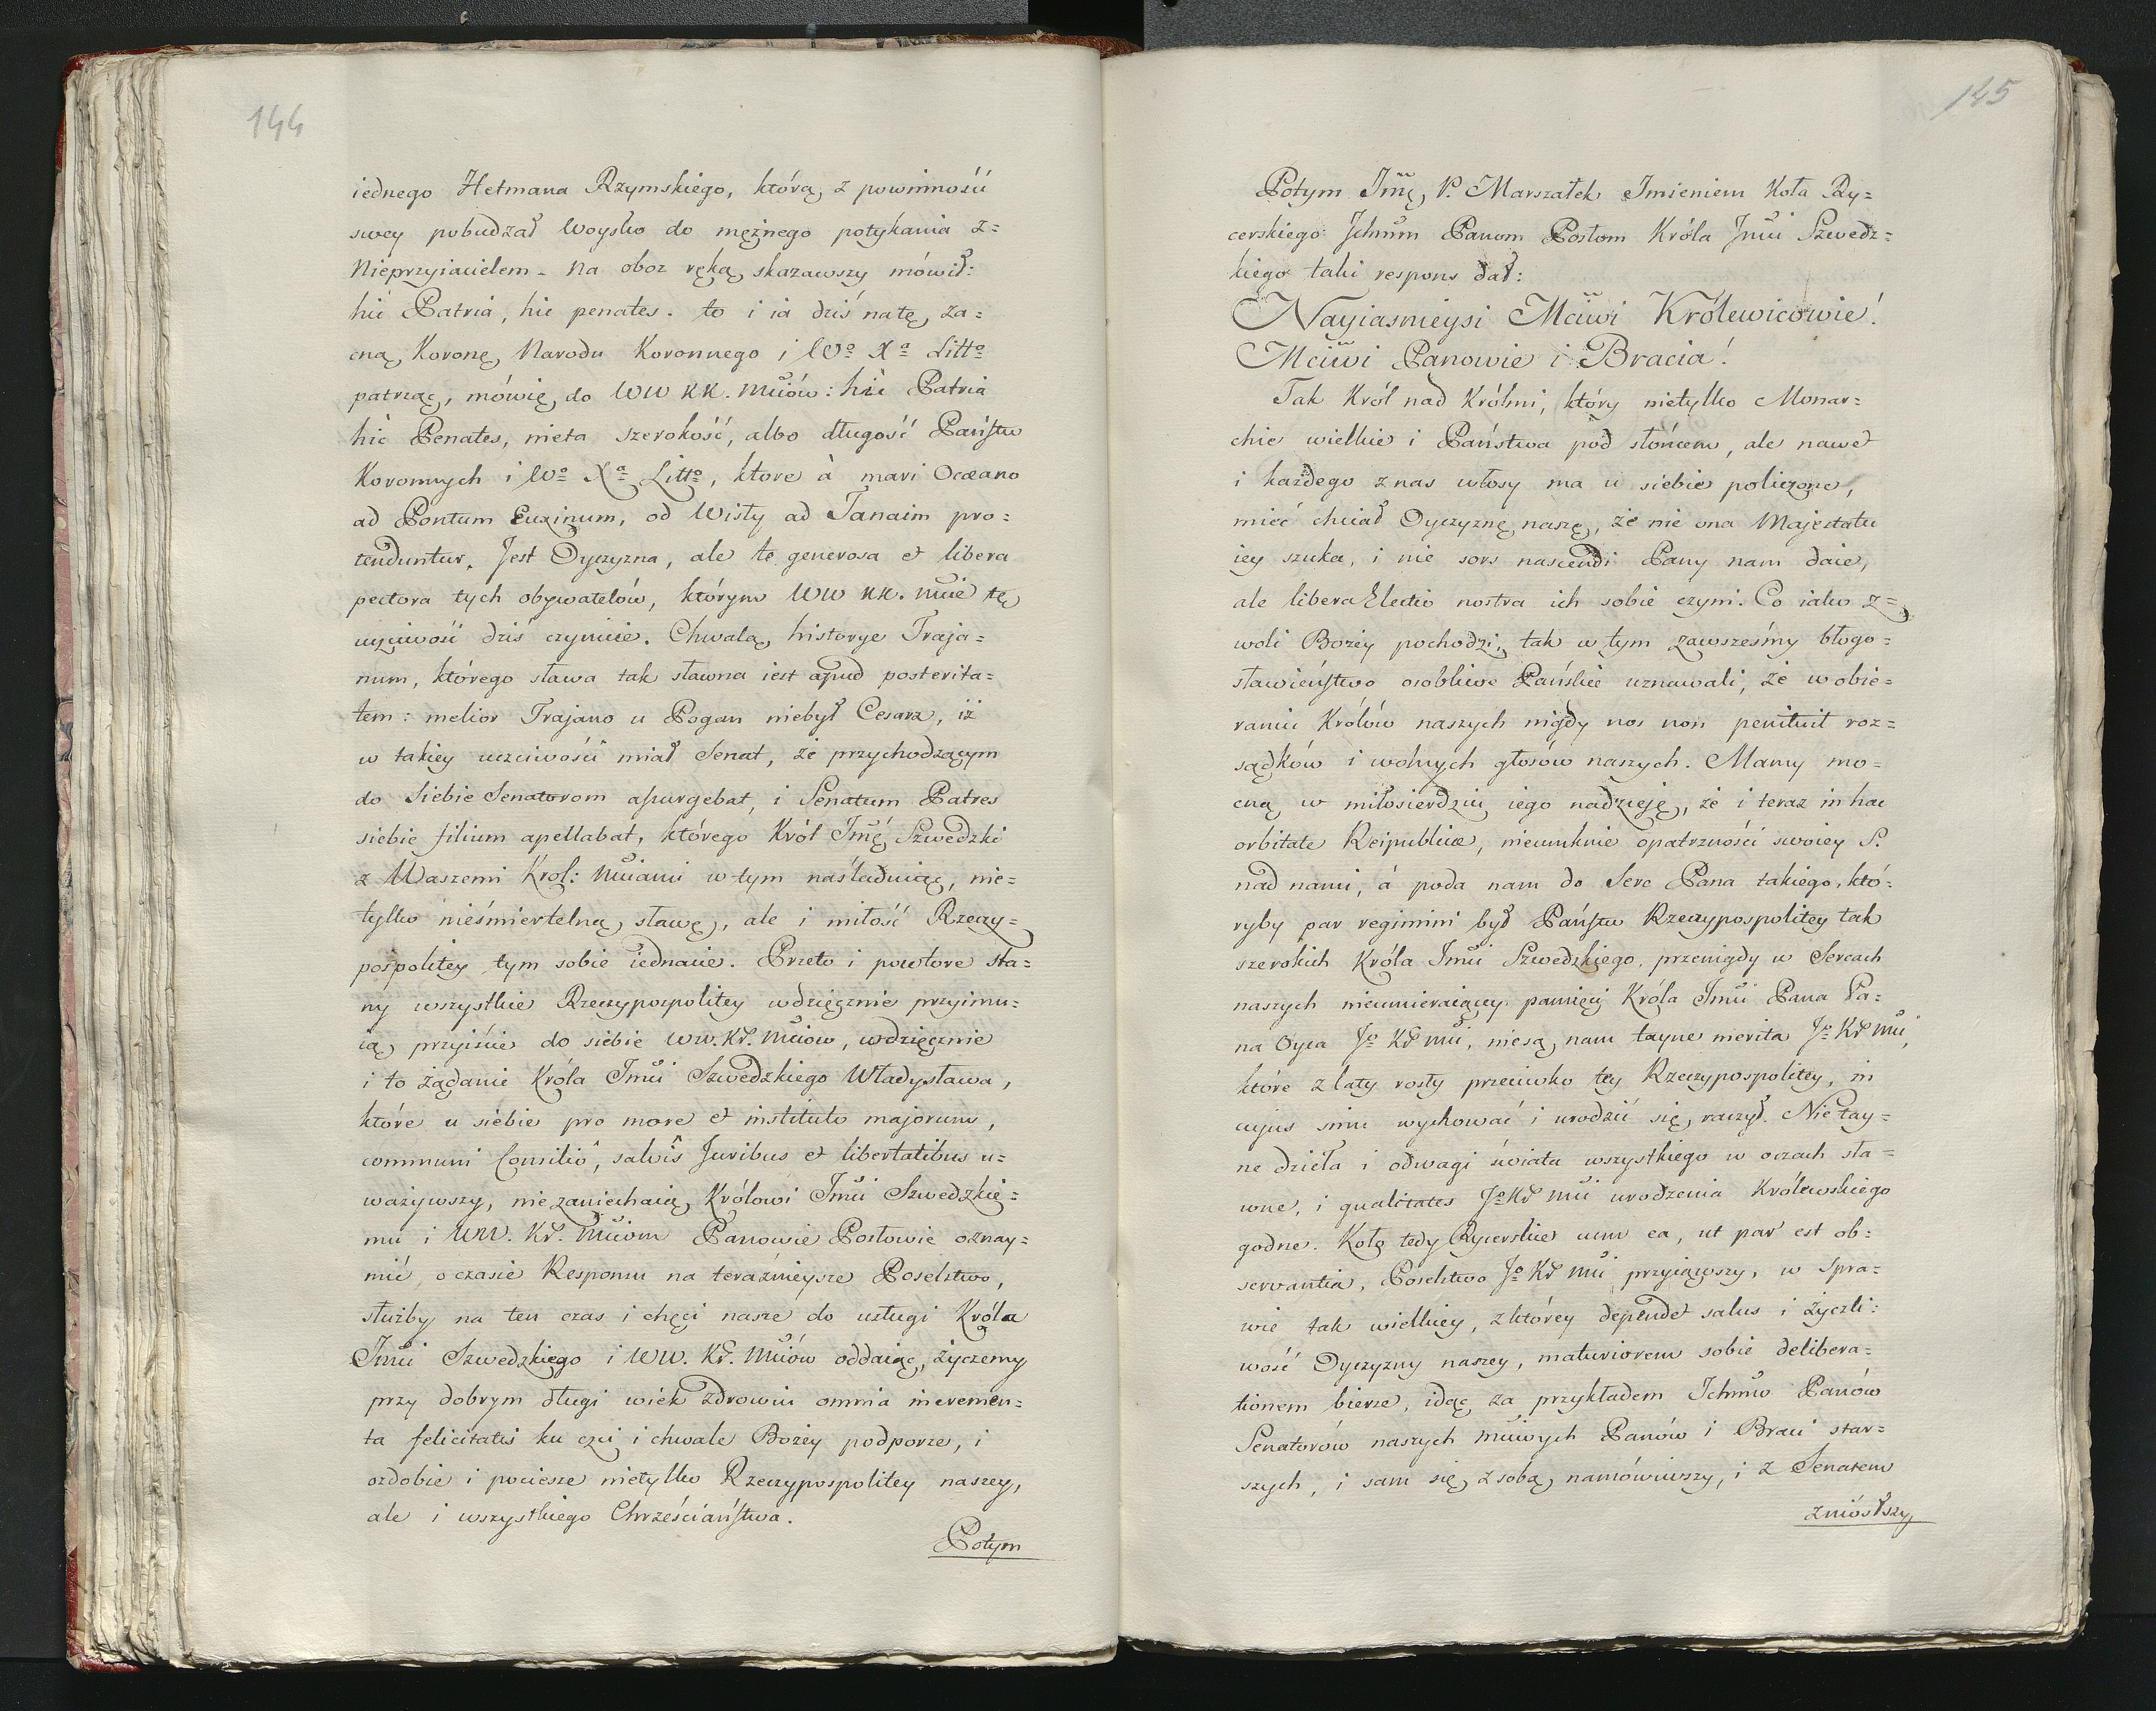 144
iednego Hetmana Rzymskiego, którą z powinności
swey pobudzał Woysko do mężnego potykania z=
Nieprzyiacielem - na oboz ręką skazawszy mówił:
hic Patria, hic penates. to i ia dziś na tę za=
cną Koronę Narodu Koronnego i Wº Xª Littº
patrząc, mówię do WW KK. Mciów: hic Patria
hic Penates, nie ta szerokość, albo długość Państw
Koronnych i Wº Xª Littº, ktore à mari Oceano
ad Pontum Euxinum, od Wisły ad Tanaim pro=
tenduntur. Jest Oyczyzna, ale te generosa et libera
pectora tych obywatelów, którym WW KK. Mcie tę
uczciwość dziś czynicie. Chwalą historye Traja=
num, którego sława tak sławna iest apud posterita=
tem: melior Trajano u Pogan niebył Cesarz, iż
w takiey uczciwości miał Senat, że przychodzącym
do Siebie Senatorom assurgebat, i Senatum Patres
siebie filium apellabat, którego Król Jmć Szwedzki
z Waszemi Król: Mciami w tym naśladuiąc, nie=
tylko nieśmiertelną sławę, ale i miłość Rzeczy=
pospolitey tym sobie iednacie. Przeto i powtore sta=
ny wszystkie Rzeczypospolitey wdzięcznie przyimu=
ią przyiście do siebie WW. Kr. Mciow, wdzięcznie
i to żądanie Króla Jmci Szwedzkiego Władysława,
które u siebie pro more et instituto majorum,
communi Consiliô, salvîs Juribus et libertatibus u=
ważywszy, nie zaniechaią Królowi Jmci Szwedzkie=
mu i WW. Kr. Mciom Panowie Posłowie oznay=
mić, o czasie Responsu na teraźnieysze Poselstwo,
służby na ten czas i chęci nasze do usługi Króla
Jmci Szwedzkiego i WW. Kr. Mciów oddaiąc, życzemy
przy dobrym długi wiek zdrowiu omnia incremen=
ta felicitatis ku czci i chwale Bożey podporze, i
ozdobie i pociesze nietylko Rzeczypospolitey naszey,
ale i wszystkiego Chrześciaństwa.
Potym
145
Potym Jmć P. Marszałek Imieniem Koła Ry=
cerskiego Ichmm Panom Posłom Króla Jmci Szwedz=
kiego taki respons dał:
Nayiasnieysi Mciwi Królewicowie!
Mciwi Panowie i Bracia!
Tak Król nad Królmi, który nietylko Monar=
chie wielkie i Państwa pod słońcem, ale nawet
i każdego z nas włosy ma u siebie policzone,
mieć chciał Oyczyznę naszę, że nie ona Majestatu
iey szuka, i nie sors nascendi Pany nam daie,
ale libera Electio nostra ich sobie czyni. Co iako z=
woli Bożey pochodzi, tak w tym zawsześmy błogo=
sławieństwo osobliwe Pańskie uznawali, że w obie=
raniu Królów naszych nigdy nos non penituit roz=
sądków i wolnych głosów naszych. Mamy mo=
cną w miłosierdziu iego nadzieję, że i teraz in hac
orbitate Reipublicæ, nieumknie opatrzności swoiey S.
nad nami, á poda nam do Serc Pana takiego, któ=
ryby par regimini był Państw Rzeczypospolitey tak
szerokich Króla Jmci Szwedzkiego, przenigdy w Sercach
naszych nieumieraiącey pamięci Króla Jmci Pana Pa=
na Oyca Jº Kr Mci, nie są nam tayne merita Jº Kr Mci,
które z laty rosły przeciwko tey Rzeczypospolitey, in
cujus sinu wychować i urodzić się raczył. Nie tay=
ne dzieła i odwagi świata wszystkiego w oczach sła=
wne, i qualitates Jº Kr Mci urodzenia Królewskiego
godne. Koło tedy Rycerskie cum ea, ut par est ob=
servantia, Poselstwo Jº Kr Mci przyiąwszy, w spra=
wie tak wielkiey, z którey dependet salus i życzli=
wość Oyczyzny naszey, maturiorem sobie delibera=
tionem bierze, idąc za przykładem Ichmw Panów
Senatorów naszych Mciwych Panów i Braci star=
szych, i sam się z sobą namówiwszy, i z Senatem
zniósłszy